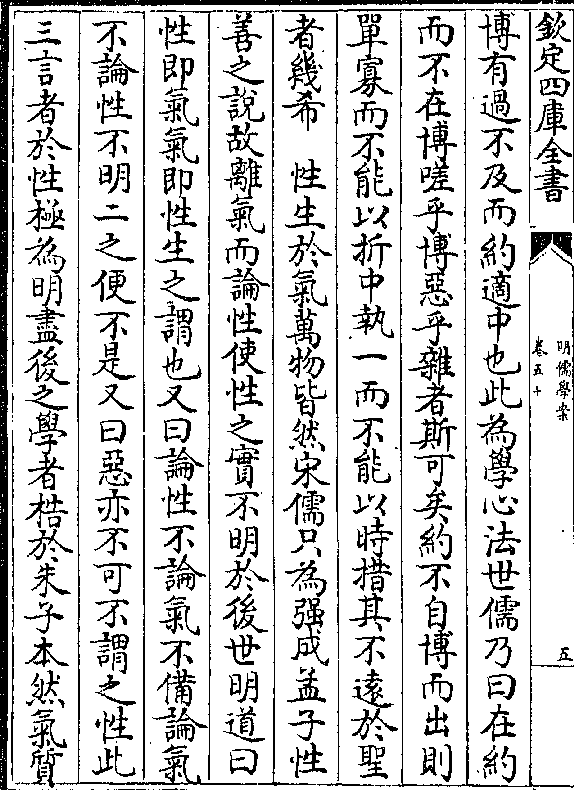 欽定四庫全書
明儒學案
卷五十
五
博有過不及而約適中也此為學心法世儒乃曰在約
而不在博嗟乎博惡乎雜者斯可矣約不自博而出則
單寡而不能以折中執一而不能以時措其不遠於聖
者幾希　性生於氣萬物皆然宋儒只為强成孟子性
善之說故離氣而論性使性之實不明於後世明道曰
性即氣氣即性生之謂也又曰論性不論氣不備論氣
不論性不明二之便不是又曰惡亦不可不謂之性此
三言者於性極為明盡後之學者梏於朱子本然氣質